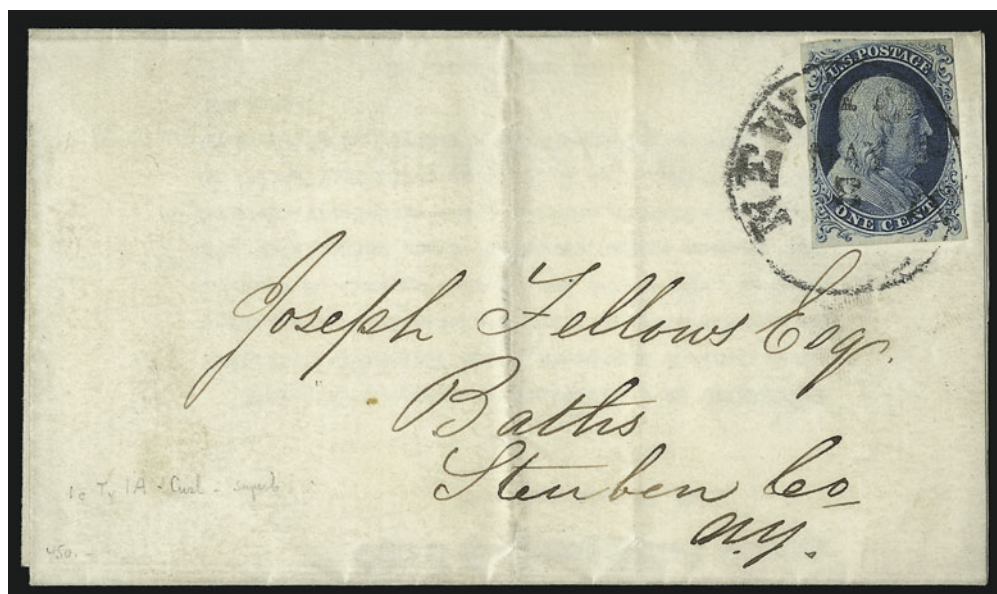 U.S. POSTAGE
ONE CENT
NEW
Joseph Fellows Esq.
Baths
Steuben Co
N.Y.
1c Ty 1A - Curl - superb
450.-